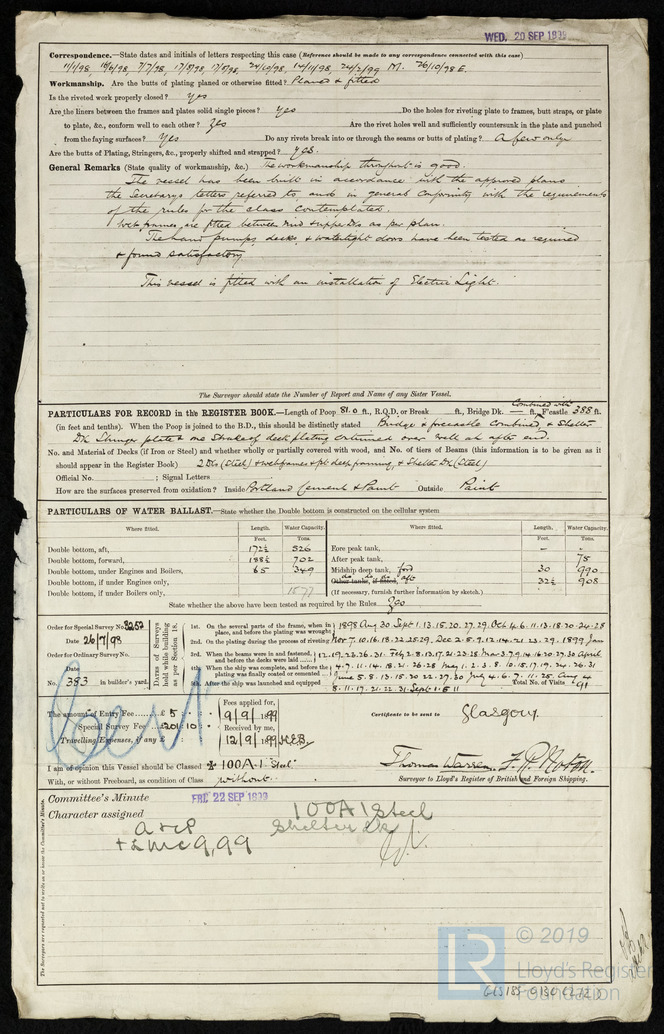 WED. 20 SEP 1899
Correspondence.—State dates and initials of letters respecting this case (Reference should be made to any correspondence connected with this case)
11/1/98, 18/6/98, 7/7/98, 17/8/98, 24/10/98, 14/11/98, 24/2/99 M. 26/10/98 E.
Workmanship. Are the butts of plating planed or otherwise fitted? Planed & fitted
Is the riveted work properly closed? Yes
Are the liners between the frames and plates solid single pieces? Yes Do the holes for riveting plate to frames, butt straps, or plate
to plate, &c., conform well to each other? Yes Are the rivet holes well and sufficiently countersunk in the plate and punched
from the faying surfaces? Yes Do any rivets break into or through the seams or butts of plating? A few only
Are the butts of Plating, Stringers, &c., properly shifted and strapped? Yes.
General Remarks (State quality of workmanship, &c.) The workmanship throughout is good.
The vessel has been built in accordance with the approved plans
the Secretarys letters referred to, and in general conformity with the requirements
of the rules for the class contemplated.
Web frames are fitted between mid & upper Dks as per plan.
The hand pumps, decks, & watertight doors have been tested as required
& found satisfactory
This vessel is fitted with an installation of Electric Light.
The Surveyor should state the Number of Report and Name of any Sister Vessel.
PARTICULARS FOR RECORD in the REGISTER BOOK.—Length of Poop 81.0 ft., R.Q.D. or Break ft., Bridge Dk. — ft., Combined with F'castle 388 ft.
(in feet and tenths). When the Poop is joined to the B.D., this should be distinctly stated Bridge & forecastle combined, & Shelter
Dk Stringer plate & one strake of deck plating continued over well at after end.
No. and Material of Decks (if Iron or Steel) and whether wholly or partially covered with wood, and No. of tiers of Beams (this information is to be given as it
should appear in the Register Book) 2 Dks (Steel) & web frames & pt deep framing, & Shelter Dk (Steel)
Official No. ; Signal Letters
How are the surfaces preserved from oxidation? Inside Portland Cement & Paint Outside Paint
PARTICULARS OF WATER BALLAST.—State whether the Double bottom is constructed on the cellular system
Where fitted. Length. Water Capacity. Where fitted. Length. Water Capacity.
Feet. Tons. Feet. Tons.
Double bottom, aft, 172½ 526 Fore peak tank, - -
Double bottom, forward, 188½ 702 After peak tank, 78
Double bottom, under Engines and Boilers, 65 349 Midship deep tank, ford 30 990
Double bottom, if under Engines only, Other tanks, if fitted, do do aft 32½ 908
Double bottom, if under Boilers only, 1577 (If necessary, furnish further information by sketch.)
State whether the above have been tested as required by the Rules Yes
Order for Special Survey No. 3252
Date 26/7/98
Order for Ordinary Survey No.
No. 383 in builder's yard.
Dates of Surveys held while building as per Section 18.
1st. On the several parts of the frame, when in place, and before the plating was wrought 1898 Aug 30 Sept 1.13.15.20.27.29. Oct 4.6.11.13.18.20.24.28
2nd. On the plating during the process of riveting Nov 7.10.16.18.22.25.29. Dec 2.5.7.12.14.21.23.29. 1899 Jan
3rd. When the beams were in and fastened, and before the decks were laid 12.19.23.26.31. Feb 2.8.13.17.21.23.28 Mar 3.7.9.14.16.20.27.30 April
4th. When the ship was complete, and before the plating was finally coated or cemented 4.7.11.14.18.21.26.28 May 1.2.3.8.10.15.17.19.24.26.31
5th. After the ship was launched and equipped June 5.8.13.15.20.22.27.30 July 4.6.7.11.25. Aug 4
8.11.17.21.22.31. Sept. 1.5.11 Total No. of Visits 91
Cert
The amount of Entry Fee £ 5 Fees applied for,
9/9/1899
Special Survey Fee £201:10 Received by me,
Travelling Expenses, if any £ 12/9/1899
Certificate to be sent to Glasgow.
I am of opinion this Vessel should be Classed 100A.1. Steel
With, or without Freeboard, as condition of Class without.
Thomas Warren.
Surveyor to Lloyd's Register of British and Foreign Shipping.
Committee's Minute FRI. 22 SEP 1899
Character assigned 100A1 Steel
Shelter Dk
A & CP
+ LMC 9,99
The Surveyors are requested not to write on or below the Committee's Minute.
LR © 2019
Lloyd's Register
Foundation